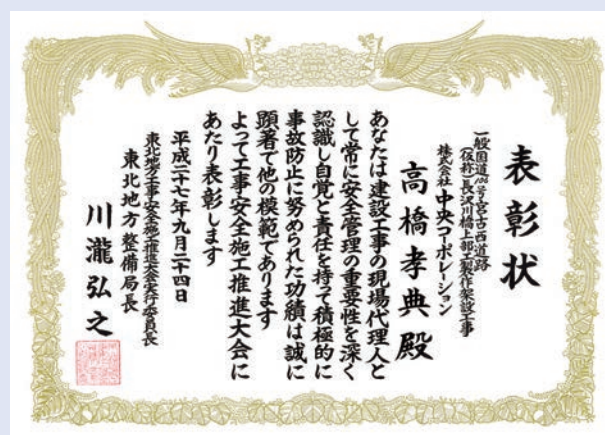 表彰状
一般国道106号宮古西道路
(仮称)長沢川橋上部工製作架設工事
株式会社中央コーポレーション
高橋孝典殿
あなたは建設工事の現場代理人と
して常に安全管理の重要性を深く
認識し自覚と責任を持って積極的に
事故防止に努められた功績は誠に
顕著で他の模範であります
よって工事安全施工推進大会に
あたり表彰します
平成二十七年九月二十四日
東北地方工事安全施工推進大会実行委員長
東北地方整備局長
川瀧弘之